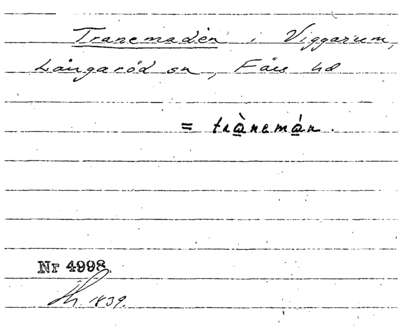 Tranemadèn, Viggarum,
Långaröd sn, Färs hd
= trànemán.
Nr 4998.
Th. 1839.